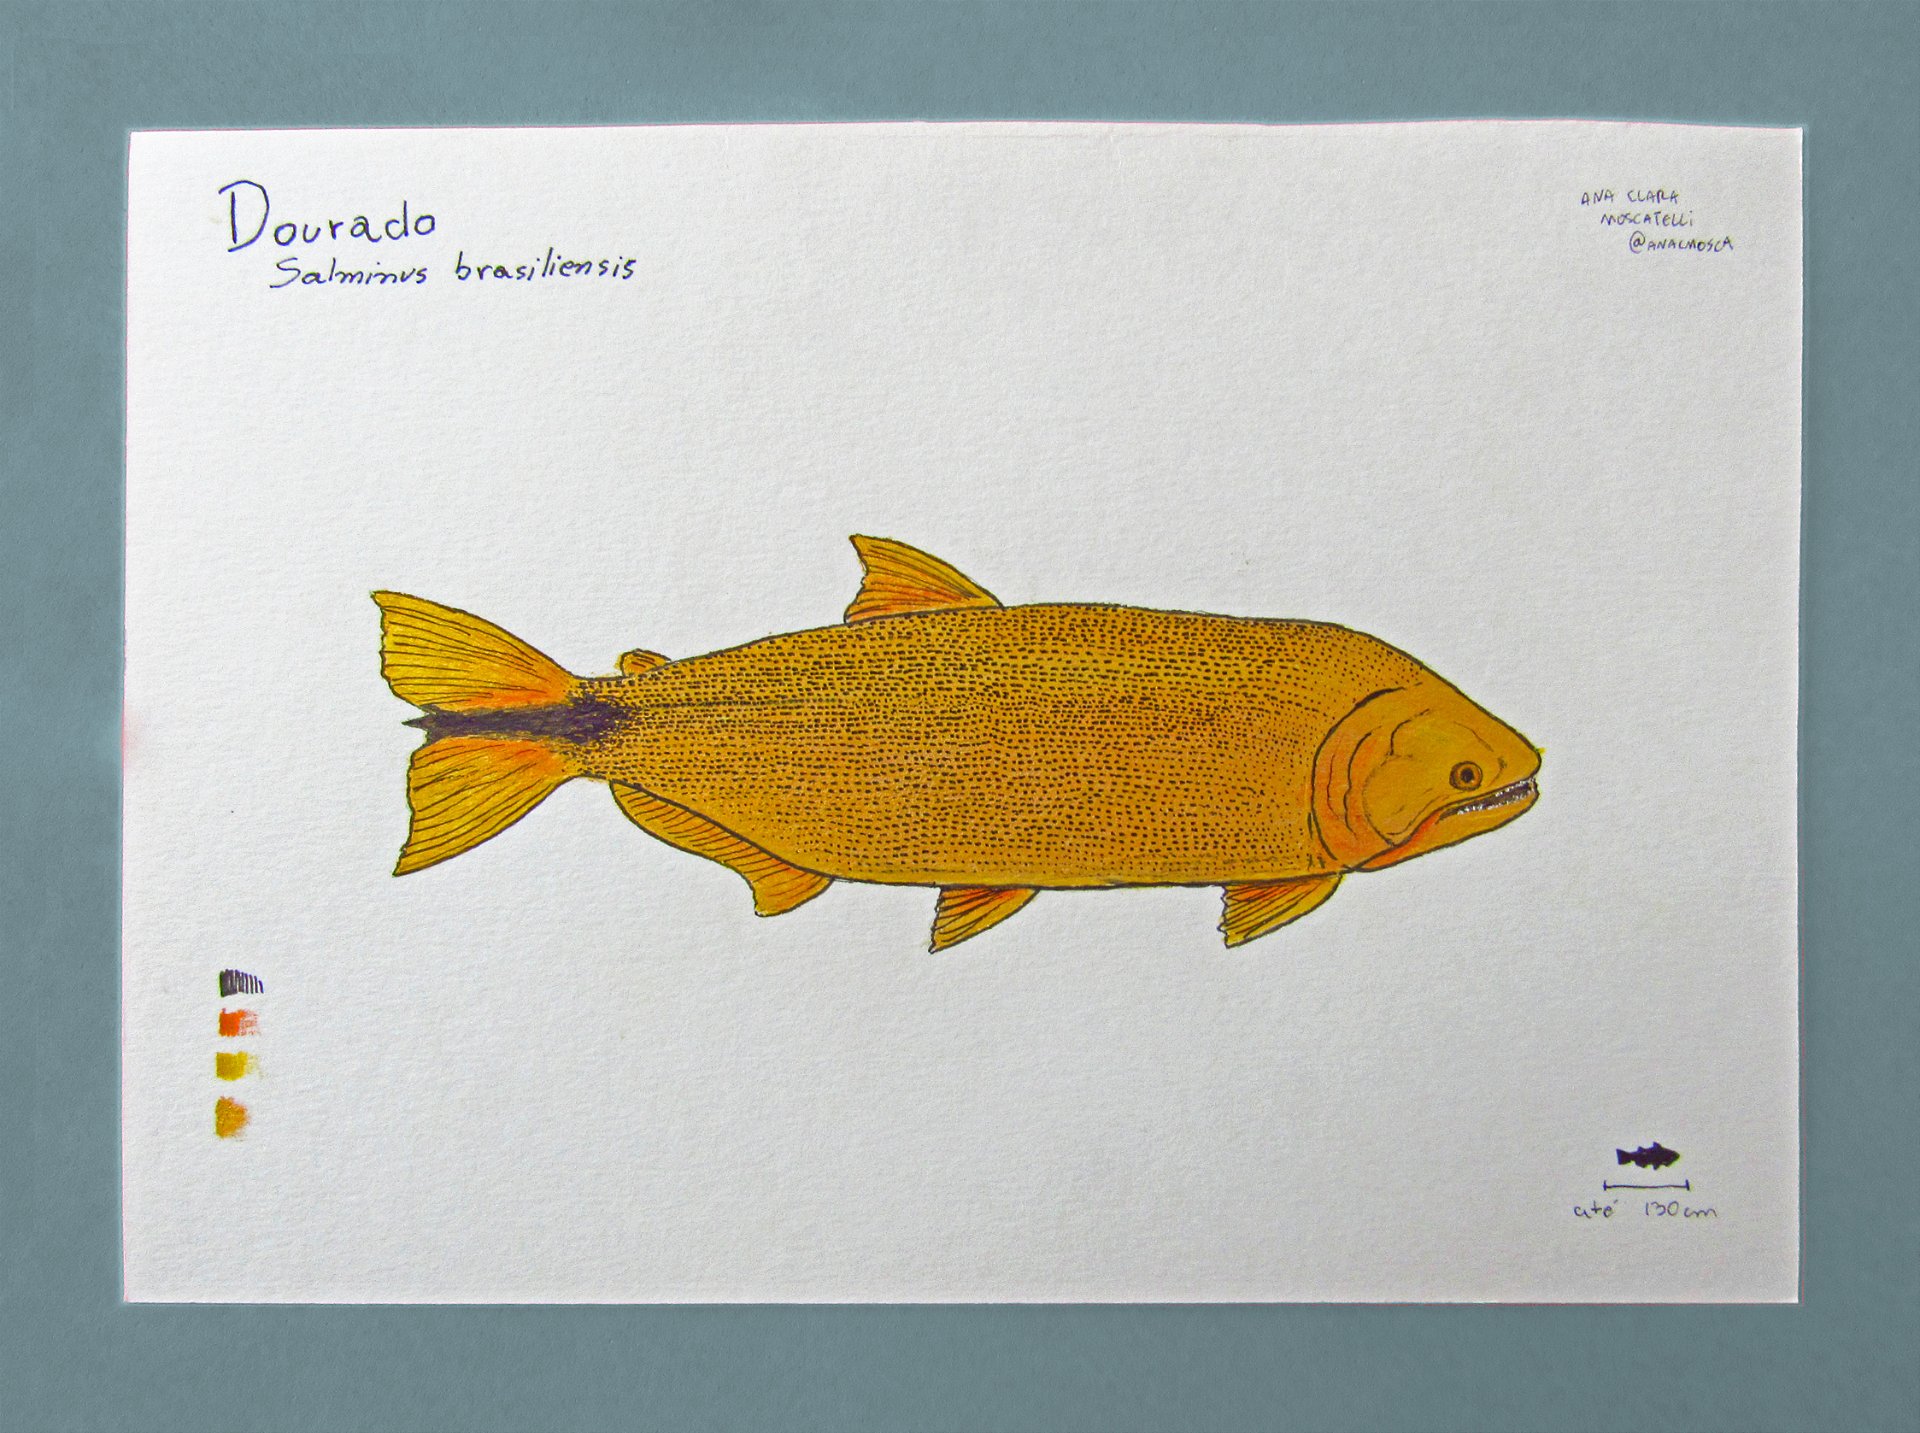 Dourado
Salminus brasiliensis
ANA CLARA
MOSCATELLi
@ANACMOSCA
até 130cm